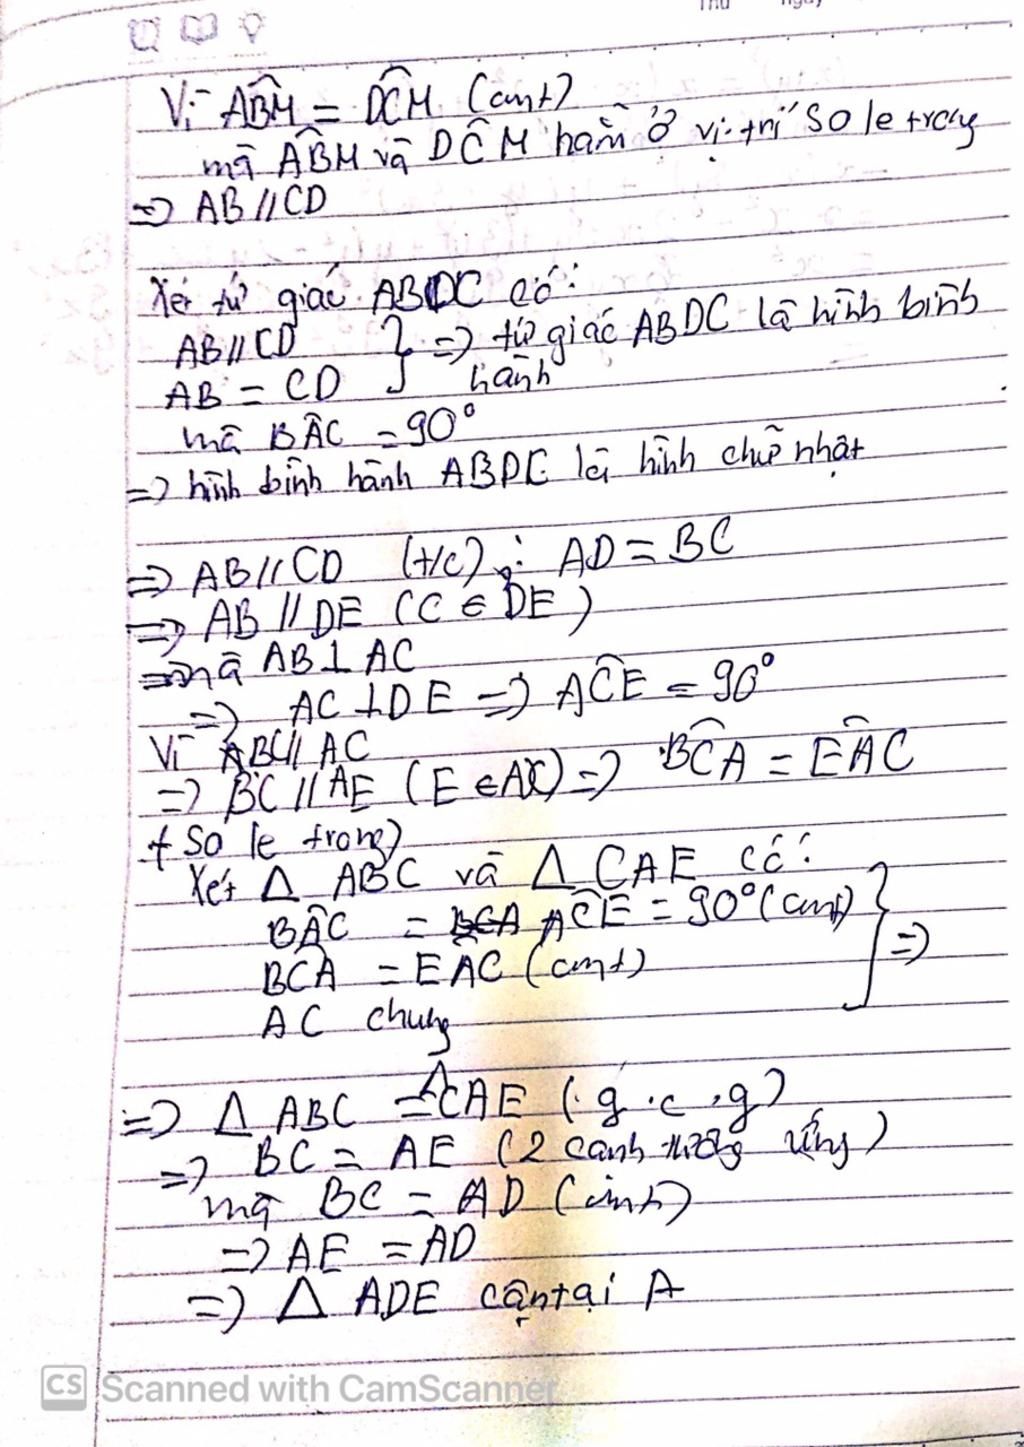 Thứ ngày
Vì ABM̂ = DCM̂ (cmt)
mà AB̂M và DĈM nằm ở vị trí so le trong
=> AB//CD
Xét tứ giác ABDC có:
AB//CD } => tứ giác ABDC là hình bình
AB = CD hành
mà BÂC = 90°
=> hình bình hành ABDC là hình chữ nhật
=> AB//CD (t/c) ; AD = BC
=> AB // DE (C ∈ DE)
mà AB⊥AC
=> AC⊥DE => AĈE = 90°
Vì BC// AX
=> BC//AE (E ∈ AX) => BĈA = EÂC
(so le trong)
Xét Δ ABC và Δ CAE có:
BÂC = AĈE = 90° (cmt)
BĈA = EÂC (cmt) } =>
AC chung
=> Δ ABC = ΔCAE (g.c.g)
=> BC = AE (2 cạnh tương ứng)
mà BC = AD (cmt)
=> AE = AD
=> Δ ADE cân tại A
CS Scanned with CamScanner